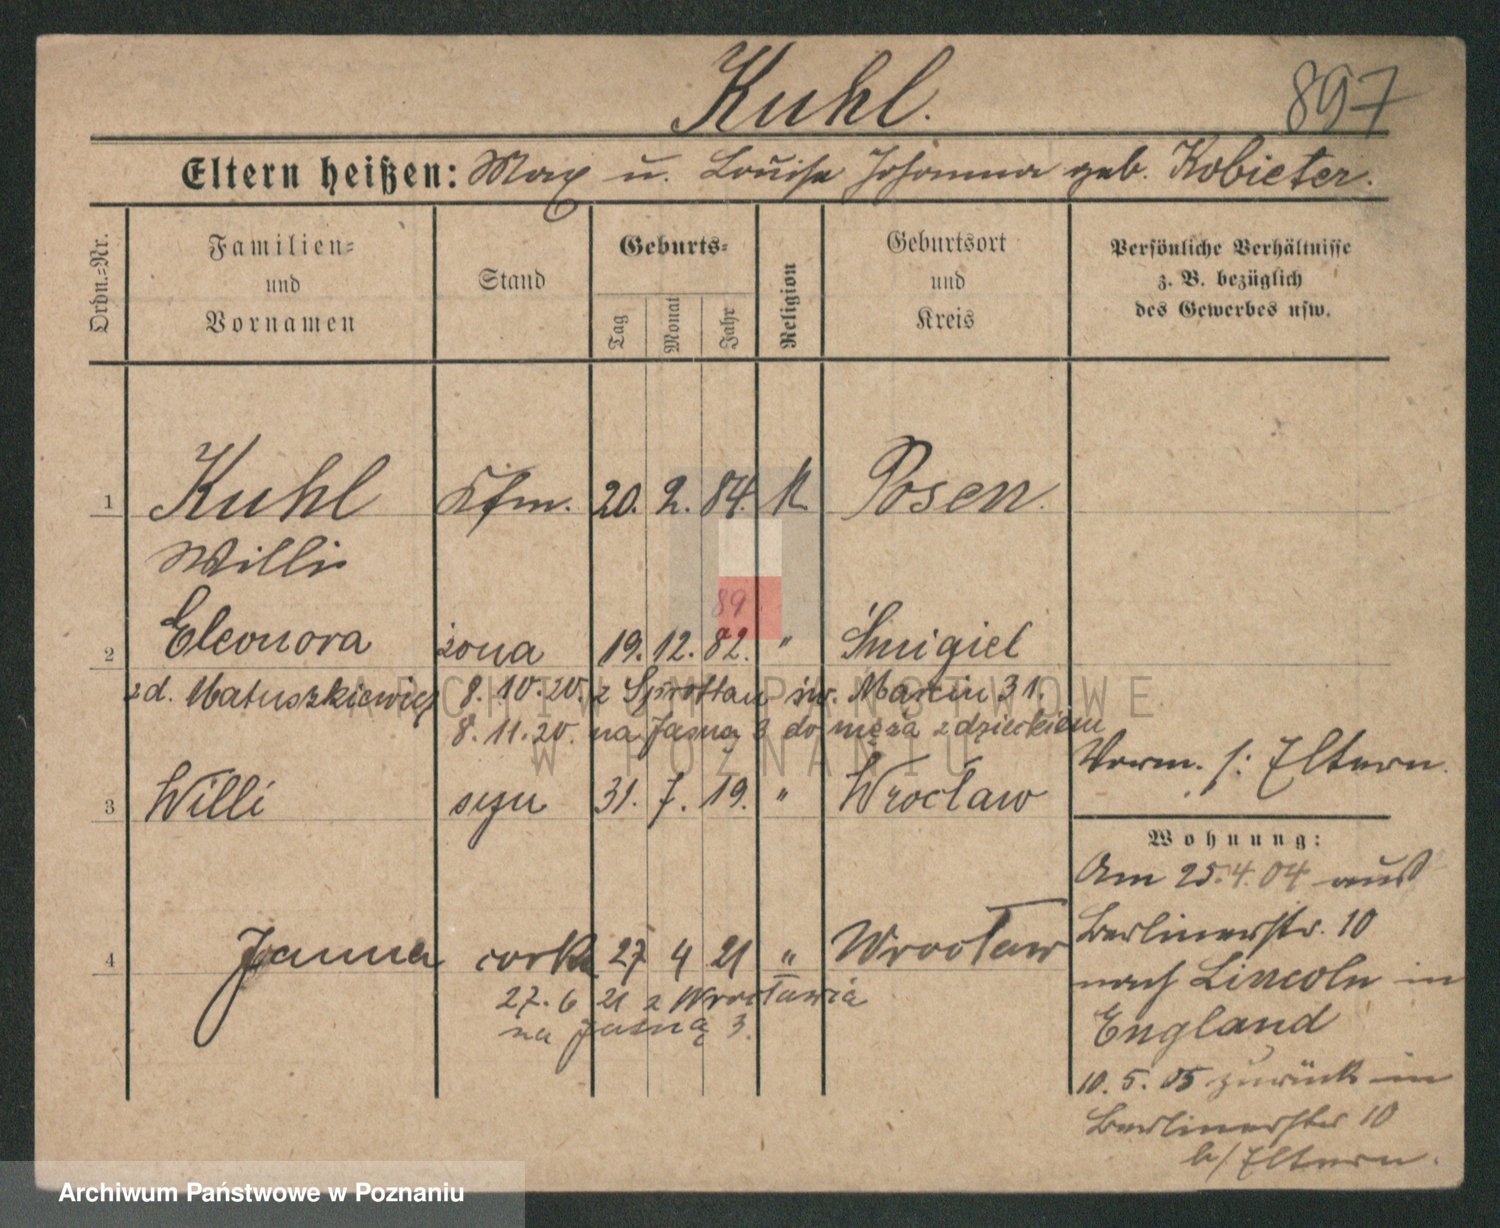 Kuhl.
897
Eltern heißen: Max u. Louise Johanna geb. Kobieter.
Ordn.=Nr.
Familien=
und
Vornamen
Stand
Geburts=
Tag
Monat
Jahr
Religion
Geburtsort
und
Kreis
Persönliche Verhältnisse
z. B. bezüglich
des Gewerbes usw.
1 Kuhl Kfm. 20. 2. 84. K Posen.
Willi
89
2 Eleonora żona 19. 12. 82. " Śmigiel
zd. Matuszkiewicz 8. 10. 20. z Sprottau św. Marcin 31.
8. 11. 20. na Jasną 3 do męża z dzieckiem
Verm. s: Eltern.
3 Willi syn 31. 7. 19. " Wrocław
Wohnung:
Am 25.4.04 aus
Berlinerstr. 10
nach Lincoln in
England
10. 5. 05 zurück in
Berlinerstr 10
b/Eltern.
4 Janna corka 27 4 21 " Wrocław
27. 6 21 z Wrocławia
na Jasną 3.
ARCHIWUM PAŃSTWOWE
W POZNANIU
Archiwum Państwowe w Poznaniu